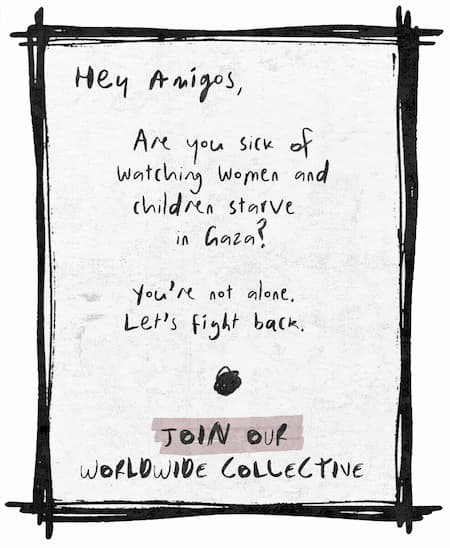 Hey Amigos,
Are you sick of
watching women and
children starve
in Gaza?
You're not alone.
Let's fight back.
JOIN OUR
WORLDWIDE COLLECTIVE